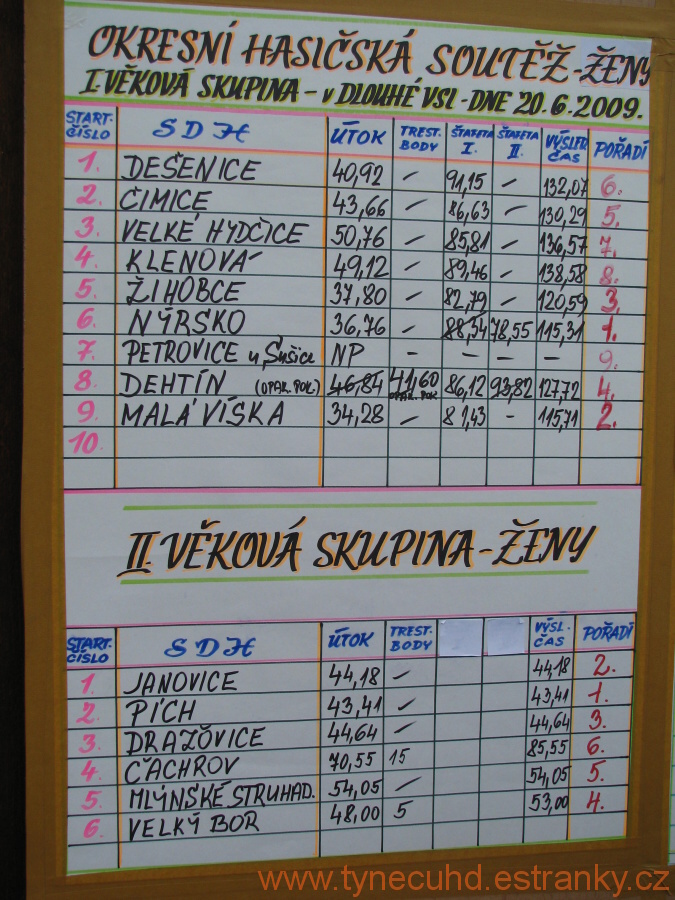 OKRESNÍ HASIČSKÁ SOUTĚŽ-ŽENY
I.VĚKOVÁ SKUPINA - v DLOUHÉ VSI - DNE 20.6.2009.
START. ČÍSLO SDH ÚTOK TREST. BODY ŠTAFETA I. ŠTAFETA II. VÝSLED. ČAS POŘADÍ
1. DEŠENICE 40,92 – 91,15 – 132,07 6.
2. ČIMICE 43,66 – 86,63 – 130,29 5.
3. VELKÉ HYDČICE 50,76 – 85,81 – 136,57 7.
4. KLENOVÁ 49,12 – 89,46 – 138,58 8.
5. ŽIHOBCE 37,80 – 82,79 – 120,59 3.
6. NÝRSKO 36,76 – 88,34 78,55 115,31 1.
7. PETROVICE u Sušice NP – – – – 9.
8. DEHTÍN (OPAK. POK.) 46,84 41,60 OPAK. POK. 86,12 93,82 127,72 4.
9. MALÁ VÍSKA 34,28 – 81,43 - 115,71 2.
10.
II. VĚKOVÁ SKUPINA-ŽENY
START. ČÍSLO SDH ÚTOK TREST. BODY VÝSL. ČAS POŘADÍ
1. JANOVICE 44,18 – 44,18 2.
2. PÍCH 43,41 – 43,41 1.
3. DRAŽOVICE 44,64 – 44,64 3.
4. ČACHROV 70,55 15 85,55 6.
5. MLÝNSKÉ STRUHAD. 54,05 – 54,05 5.
6. VELKÝ BOR 48,00 5 53,00 4.
www.tynecuhd.estranky.cz